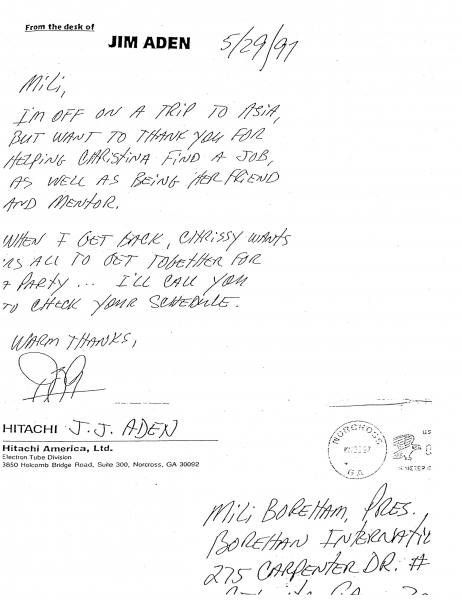 From the desk of
JIM ADEN
5/29/97
Mili,
I'M OFF ON A TRIP TO ASIA,
BUT WANT TO THANK YOU FOR
HELPING CHRISTINA FIND A JOB,
AS WELL AS BEING HER FRIEND
AND MENTOR.
WHEN I GET BACK, CHRISSY WANTS
US ALL TO GET TOGETHER FOR
A PARTY... I'LL CALL YOU
TO CHECK YOUR SCHEDULE.
WARM THANKS,
HITACHI J.J. ADEN
Hitachi America, Ltd.
Electron Tube Division
3850 Holcomb Bridge Road, Suite 300, Norcross, GA 30092
NORCROSS
GA
US
METER
MILI BOREHAM, PRES.
BOREHAM INTERNATI
275 CARPENTER DR. #